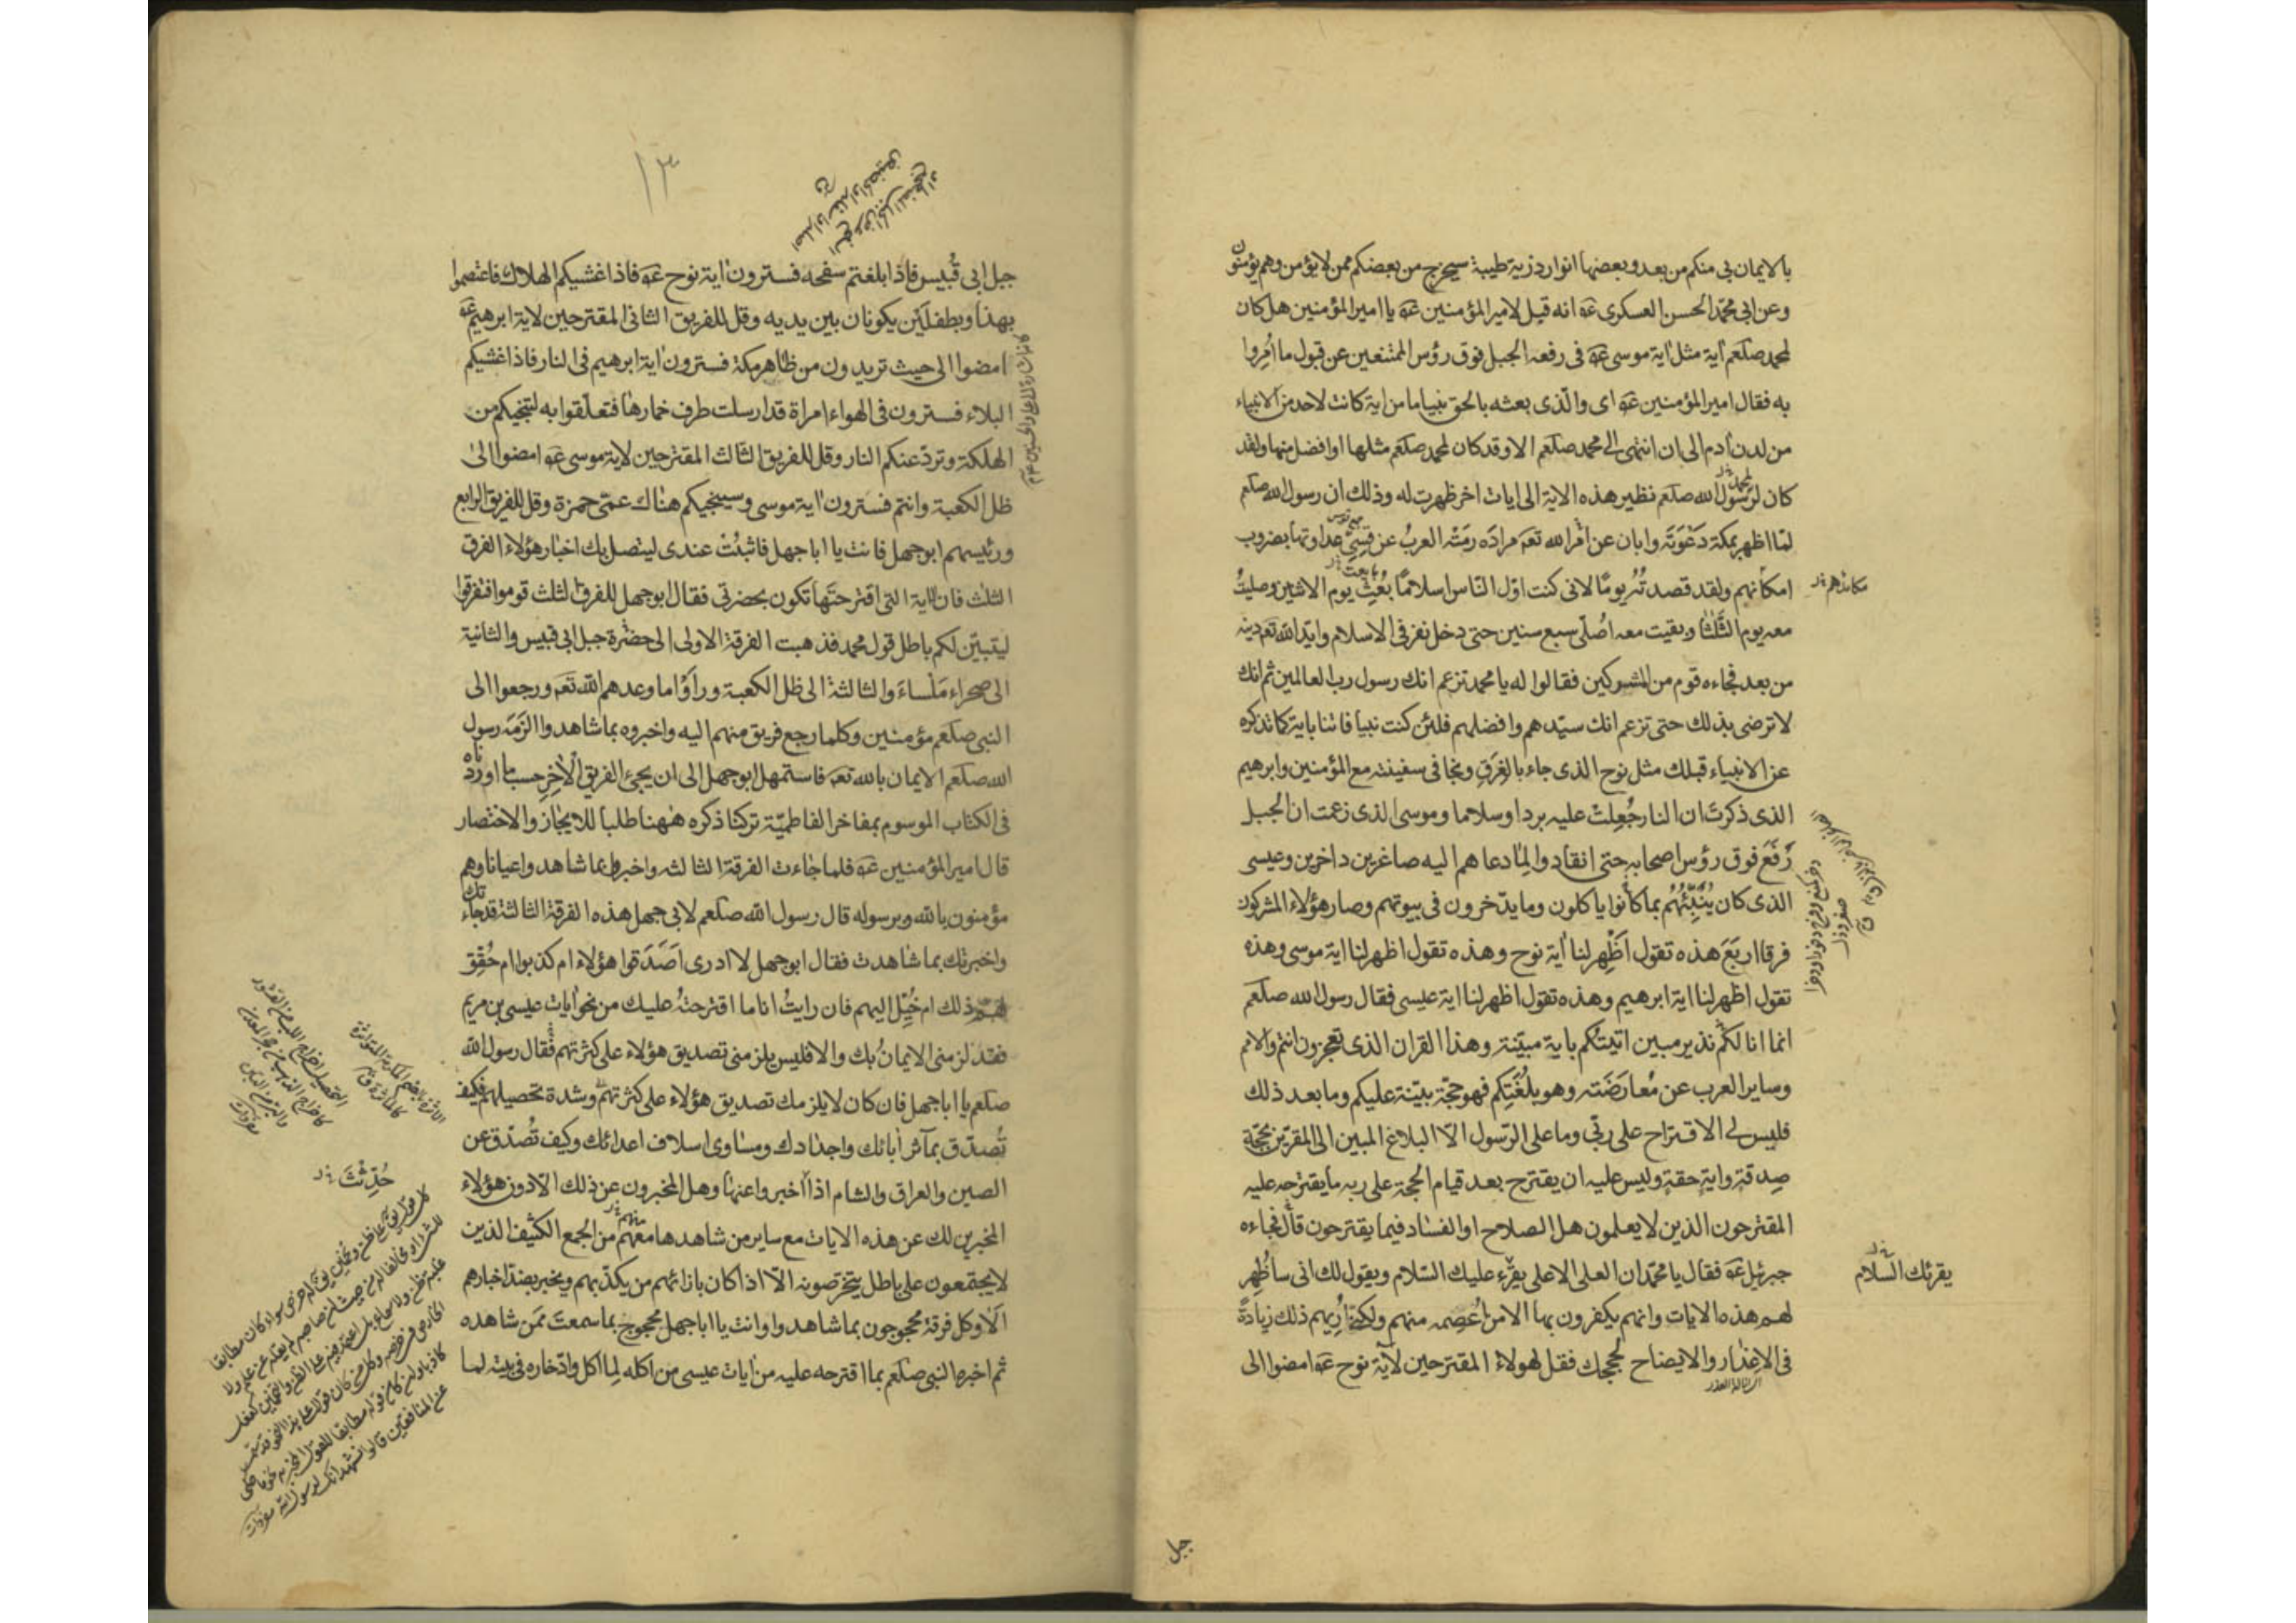 بالايمان بى منكم من بعد وبعضها انوار ذرية طيبة سيخرج من بعضكم ممن لا يؤمن وهم يؤمنون
وعن ابى محمد الحسن العسكرى عه انه قيل لامير المؤمنين عه يا امير المؤمنين هل كان
لمحمد صلعم اية مثل اية موسى عه فى رفعه الجبل فوق رؤس الممتنعين عن قبول ما اُمِروا
به فقال امير المؤمنين عه اى والذى بعثه بالحق نبيا ما من اية كانت لاحد من الانبياء
من لدن ادم الى ان انتهى الى محمد صلعم الا وقد كان لمحمد صلعم مثلها او افضل منها ولقد
كان لرسول الله صلعم نظير هذه الاية الى ايات اخر ظهرت له وذلك ان رسول الله صلعم
لما اظهر بمكة دَعْوَتَه وابان عن امر الله تعه مراده رمَتْه العربُ عن قِسِىّ عداوتها بضروب
امكانهم ولقد قصدتُه يومًا لانى كنت اوّل الناس اسلامًا بُعِثَ يوم الاثنين وصليتُ
معه يوم الثلثا وبقيت معه اُصلّى سبع سنين حتى دخل نفر فى الاسلام وايد الله تعه دينه
من بعد فجاءه قوم من المشركين فقالوا له يا محمد تزعم انك رسول رب العالمين ثم انك
لا ترضى بذلك حتى تزعم انك سيّدهم وافضلهم فلئن كنت نبيا فاتنا باية كما تذكره
عن الانبياء قبلك مثل نوح الذى جاء بالغَرَقِ ونجا فى سفينته مع المؤمنين وابرهيم
الذى ذكرتَ ان النار جُعِلتْ عليه بردا وسلاما وموسى الذى زعمت ان الجبل
رُفِعَ فوق رؤس اصحابه حتى انقادوا لِما دعاهم اليه صاغرين داخرين وعيسى
الذى كان يُنَبِّئُهُم بما كانوا ياكلون وما يدّخرون فى بيوتهم وصار هؤلاء المشركون
فرقا اربَعَ هذه تقول اَظْهِر لنا اية نوح وهذه تقول اظهر لنا اية موسى وهذه
تقول اظهر لنا اية ابرهيم وهذه تقول اظهر لنا اية عيسى فقال رسول الله صلعم
انما انا لكم نذير مبين اتيتكم باية مبيّنة وهذا القران الذى تعجزون انتم والامم
وساير العرب عن مُعارَضَته وهو بلُغَتِكم فهو حجّة بيّنة عليكم وما بعد ذلك
فليس لى الاقتراح على ربّى وما على الرّسول الّا البلاغ المبين الى المقرّين بحجّة
صدقهٖ وايةِ حقهٖ وليس عليه ان يقترح بعد قيام الحجة على ربه ما يقترحه عليه
المقترحون الذين لا يعلمون هل الصلاح او الفساد فيما يقترحون قال فجاءه
جبرئيل عه فقال يا محمّد ان العلى الاعلى يقرء عليك السّلام ويقول لك انى سأُظهِر
لهم هذه الايات وانهم يكفرون بها الا من اَعْصِمه منهم ولكنى اُريهم ذلك زيادةً
فى الاعذار والايضاح لحججك فقل لهولاءِ المقترحين لآية نوح عه امضوا الى
لمحمد
مكائدهم
يقرئك السلام
جبل
١٣
جبل ابى قُبيس فاذا بلغتم سفحه فسترون اية نوح عه فاذا غشيكم الهلاك فاعتصموا
بهذا وبطفلَيْن يكونان بين يديه وقل للفريق الثانى المقترحين لاية ابرهيم عه
امضوا الى حيث تريدون من ظاهر مكة فسترون اية ابرهيم فى النار فاذا غشيكم
البلاء فسترون فى الهواء امراة قد ارسلت طرف خمارها فتعلّقوا به لتنجيكم من
الهلكة وتردّ عنكم النار وقل للفريق الثالث المقترحين لاية موسى عه امضوا الى
ظل الكعبة وانتم فسَترون اية موسى وسينجيكم هناك عمّى حمزة وقل للفريق الرابع
ورئيسهم ابو جهل فانت يا ابا جهل فاثبُتْ عندى ليتصل بك اخبار هؤلاء الفرق
الثلث فان الاية التى اقترحتَها تكون بحضرتى فقال ابو جهل للفرق الثلث قوموا فتفرقوا
ليتبيّن لكم باطل قول محمد فذهبت الفرقة الاولى الى حضرة جبل ابى قبيس والثانية
الى صحراء مَلْساءَ والثالثة الى ظل الكعبة وراَوْا ما وعدهم الله تعه ورجعوا الى
النبى صلعم مؤمنين وكلما رجع فريق منهم اليه واخبروه بما شاهدوا الزَمَه رسول
الله صلعم الايمان بالله تعه فاستمهل ابو جهل الى ان يجئ الفريق الاٰخِر حسب ما اوردناه
فى الكتاب الموسوم بمفاخر الفاطميّة تركنا ذكره هٰهنا طلبا للايجاز والاختصار
قال امير المؤمنين عه فلما جاءت الفرقة الثالثه واخبروا بما شاهدوا عيانا وهم
مؤمنون بالله وبرسوله قال رسول الله صلعم لابى جهل هذه الفرقة الثالثة قد جاءتك
واخبرتك بما شاهدت فقال ابو جهل لا ادرى اَصَدَقوا هؤلاء ام كذبوا ام حُقِق
لهم ذلك ام خُيِّل اليهم فان رايتُ انا ما اقترحتُه عليك من نحو ايات عيسى بن مريم
فقد لزمنى الايمانُ بك والا فليس يلزمنى تصديق هؤلاء على كثرتهم فقال رسول الله
صلعم يا ابا جهل فان كان لا يلزمك تصديق هؤلاء على كثرتهم وشدة تحصيلهم فكيف
تُصدّق بمآثر أبائك واجدادك ومساوى اسلاف اعدائك وكيف تُصدّق عن
الصين والعراق والشام اذا اُخبروا عنها وهل المخبرون عن ذلك الّا دون هؤلاء
المخبرين لك عن هذه الايات مع ساير من شاهدها معهم من الجمع الكثيف الذين
لا يجتمعون على باطل يتخرّصونه الّا اذا كان بازائهم من يكذّبهم ويخبر بضدّ اخبارهم
اَلَا وكل فرقة محجوجون بما شاهدوا وانت يا ابا جهل محجوج بما سمعتَ ممّن شاهده
ثم اخبره النبى صلعم بما اقترحه عليه من ايات عيسى من اكله لِما اكل وادّخاره فى بيته لما
منهم
حُدِّثْتَ